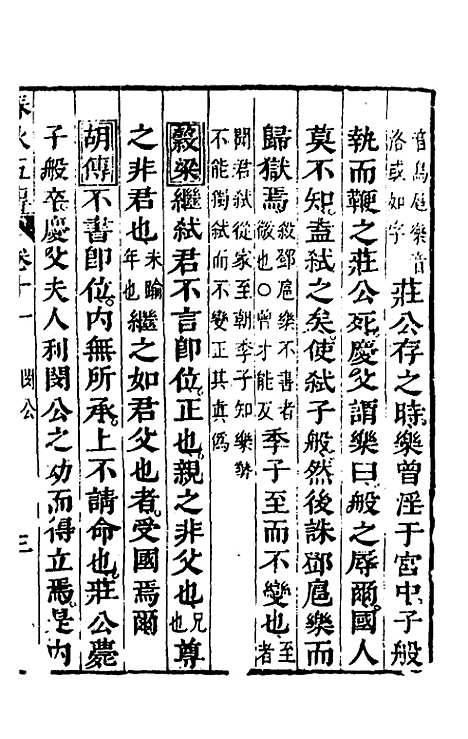 音烏扈樂音
洛或如字
莊公存之時樂曾淫于宮中子般
執而鞭之莊公死慶父謂樂曰般之辱爾國人
莫不知盍弑之矣使弑子般然後誅鄧扈樂而
歸獄焉
殺鄧扈樂不書者
微也○曾才能反
季子至而不變也
至者
聞君弑從家至朝季子知樂勢
不能獨弑而不變正其真僞
穀梁繼弑君不言卽位正也親之非父也
兄也
尊
之非君也
未踰年也
繼之如君父也者受國焉爾
胡傳不書卽位內無所承上不請命也莊公薨
子般卒慶父夫人利閔公之幼而得立焉是內
春秋五傳 卷十一 閔公 三